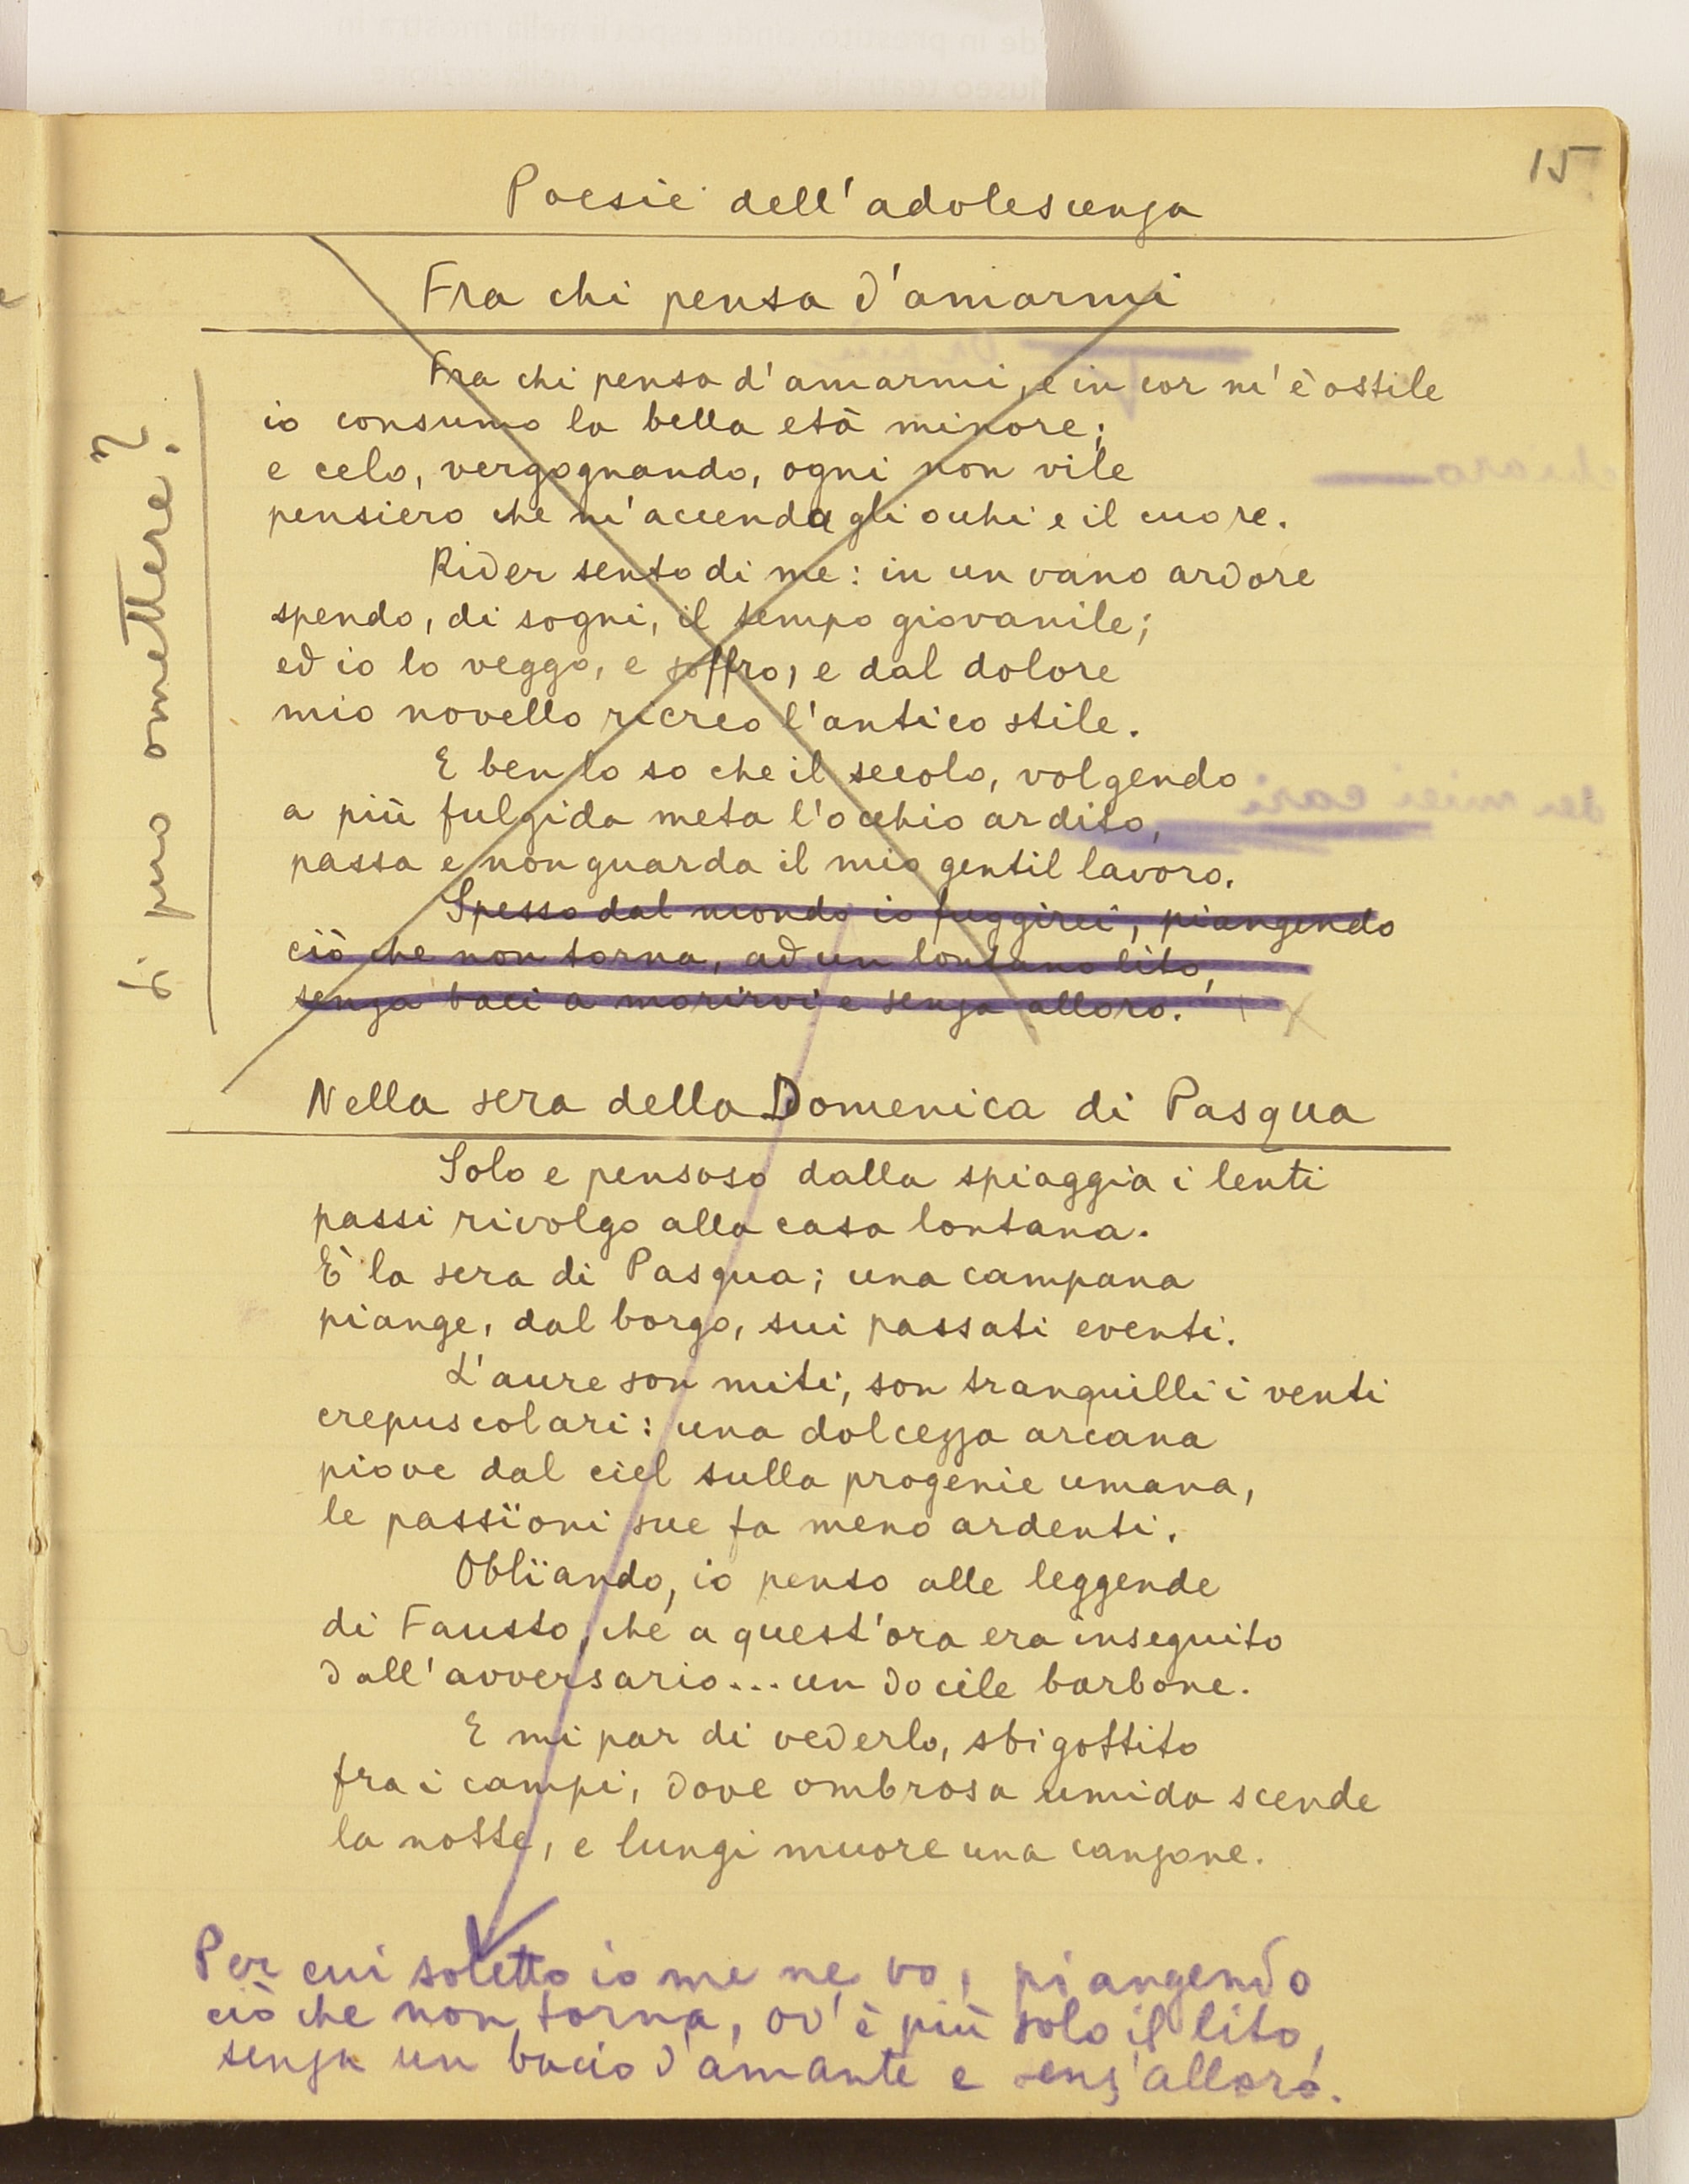 15
Poesie dell'adolescenza
Fra chi pensa d'amarmi
Fra chi pensa d'amarmi, e in cor m'è ostile
io consumo la bella età minore;
e celo, vergognando, ogni non vile
pensiero che m'accenda gli occhi e il cuore.
Rider sento di me: in un vano ardore
spendo, di sogni, il tempo giovanile;
ed io lo veggo, e soffro, e dal dolore
mio novello ricreo l'antico stile.
E ben lo so che il secolo, volgendo
a più fulgida meta l'occhio ardito,
passa e non guarda il mio gentil lavoro.
Spesso dal mondo io fuggirei, piangendo
ciò che non torna, ad un lontano lito,
senza baci a morirvi e senza alloro.
Si può omettere?
Nella sera della Domenica di Pasqua
Solo e pensoso dalla spiaggia i lenti
passi rivolgo alla casa lontana.
È la sera di Pasqua; una campana
piange, dal borgo, sui passati eventi.
L'aure son miti, son tranquilli i venti
crepuscolari: una dolcezza arcana
piove dal ciel sulla progenie umana,
le passïoni sue fa meno ardenti.
Oblïando, io penso alle leggende
di Fausto, che a quest'ora era inseguito
dall'avversario... un docile barbone.
E mi par di vederlo, sbigottito
fra i campi, dove ombrosa umida scende
la notte, e lungi muore una canzone.
Per cui soletto io me ne vo, piangendo
ciò che non torna, ov'è più solo il lito,
senza un bacio d'amante e senz'alloro.